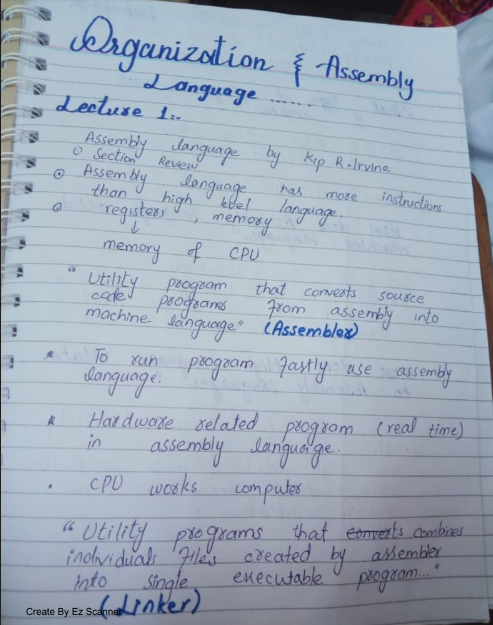 Organization & Assembly
Language ......
Lecture 1:-
Assembly language by Kip R. Irvine
Section Review
Assembly language has more instructions
than high level language.
registers, memory
↓
memory of CPU
"Utility program that converts source
code programs from assembly into
machine language" (Assembler)
* To run program fastly use assembly
language.
* Hardware related program (real time)
in assembly language.
. CPU works computer
"Utility programs that converts combines
individuals files created by assembler
into single executable program..."
(Linker)
Create By Ez Scanner